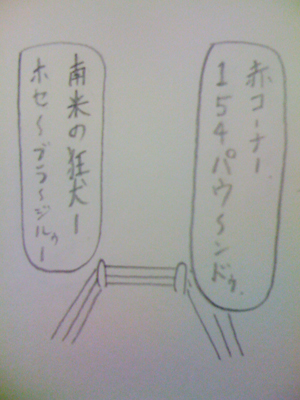 赤コーナー
154パウ〜ンドゥ
南米の狂犬ー
ホセ〜ブラ〜ジルゥー